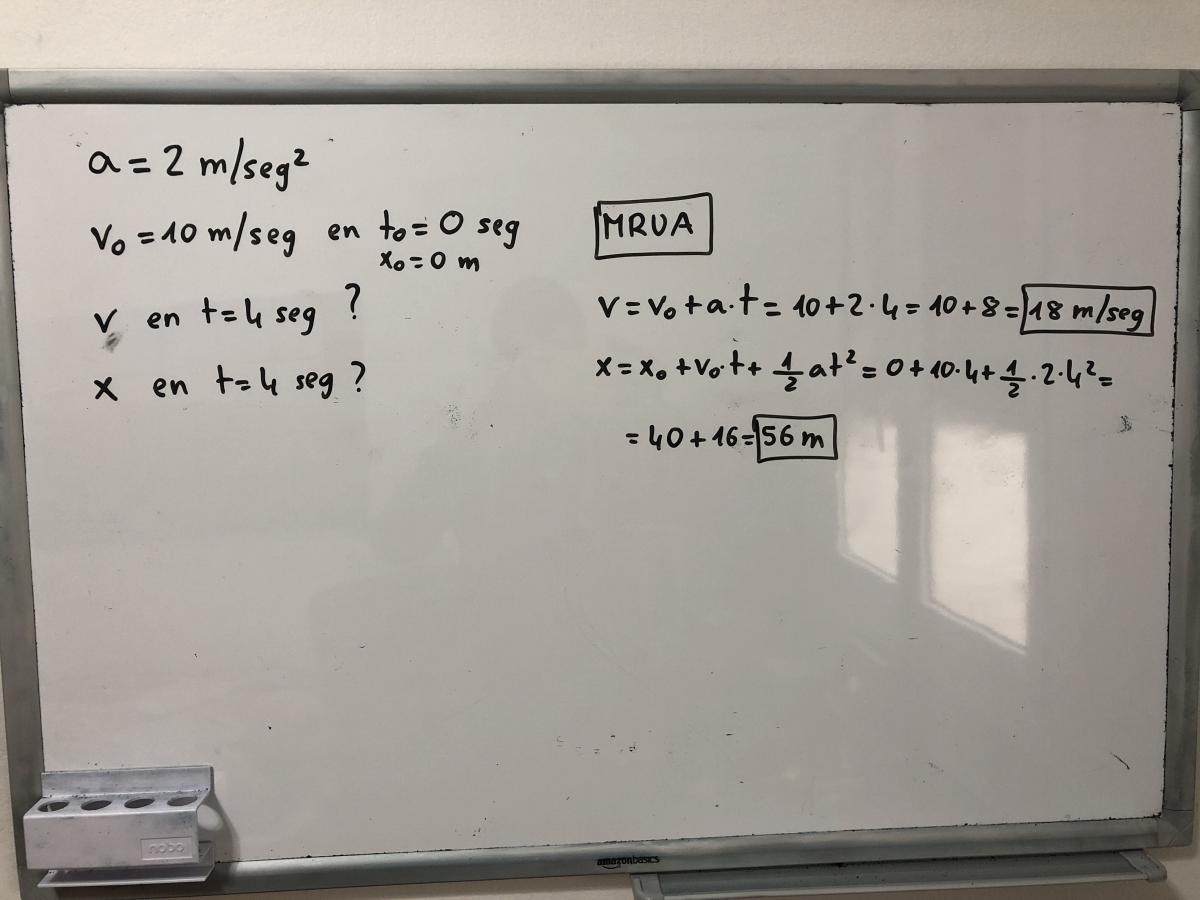 a = 2 m/seg²
v₀ = 10 m/seg en t₀ = 0 seg
x₀ = 0 m
v en t = 4 seg ?
x en t = 4 seg ?
MRUA
v = v₀ + a·t = 10 + 2·4 = 10 + 8 = 18 m/seg
x = x₀ + v₀·t + 1/2 at² = 0 + 10·4 + 1/2·2·4² =
= 40 + 16 = 56 m
nobo
amazonbasics